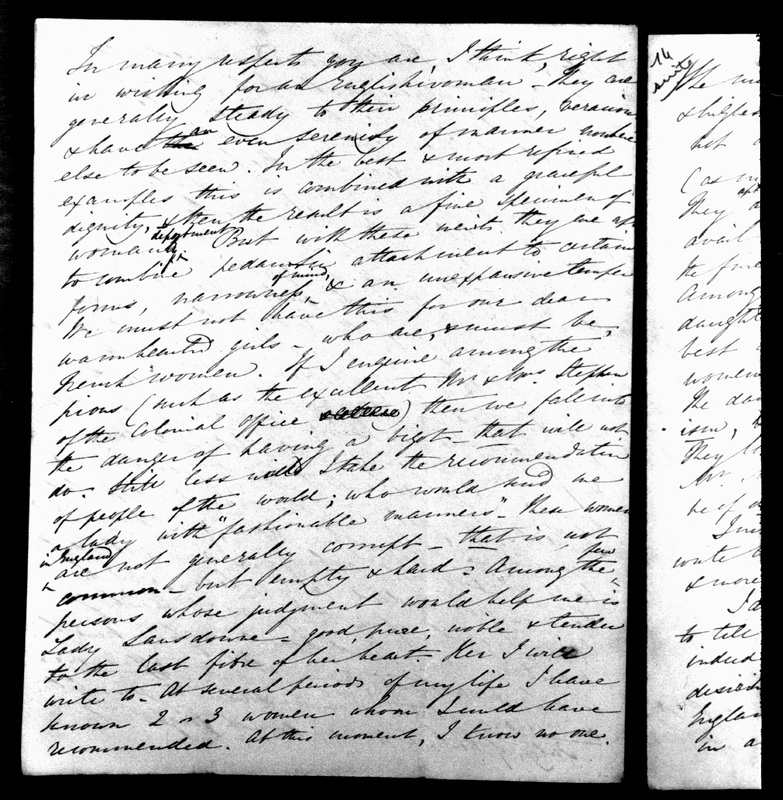 In many respects you are, I think, right
in wishing for an Englishwoman - They are
generally steady to their principles, veracious
& have an even serenity of manner nowhere
else to be seen. In the best & most refined
examples this is combined with a graceful
dignity, & then the result is a fine specimen of
womanly deportment. But with these merits they are apt
to combine pedantic attachment to certain
forms, narrowness of mind, & an unexpansive temper
We must not have this for our dear
warmhearted girls - who are, & must be,
French women. If I enquire among the
pious (such as the excellent Mr & Mrs Stephen
of the Colonial office) then we fall into
the danger of having a bigot - that will not
do. Still less will I take the recommendation
of people of the world; who would send me
a lady with "fashionable manners". These women
in England are not generally corrupt - that is not
common - but empty & hard = Among the few
persons whose judgment would help me is
Lady Lansdowne = good, pure, noble & tender
to the last fibre of her heart. Her I will
write to - At several periods of my life I have
known 2 or 3 women whom I could have
recommended. At this moment, I know no one.
14
suite
The
not
(as
They
avail
the
Among
daught
best
women
The
ism,
They
Mr.
be of
write
& more
to tell
indeed
Englan
in a